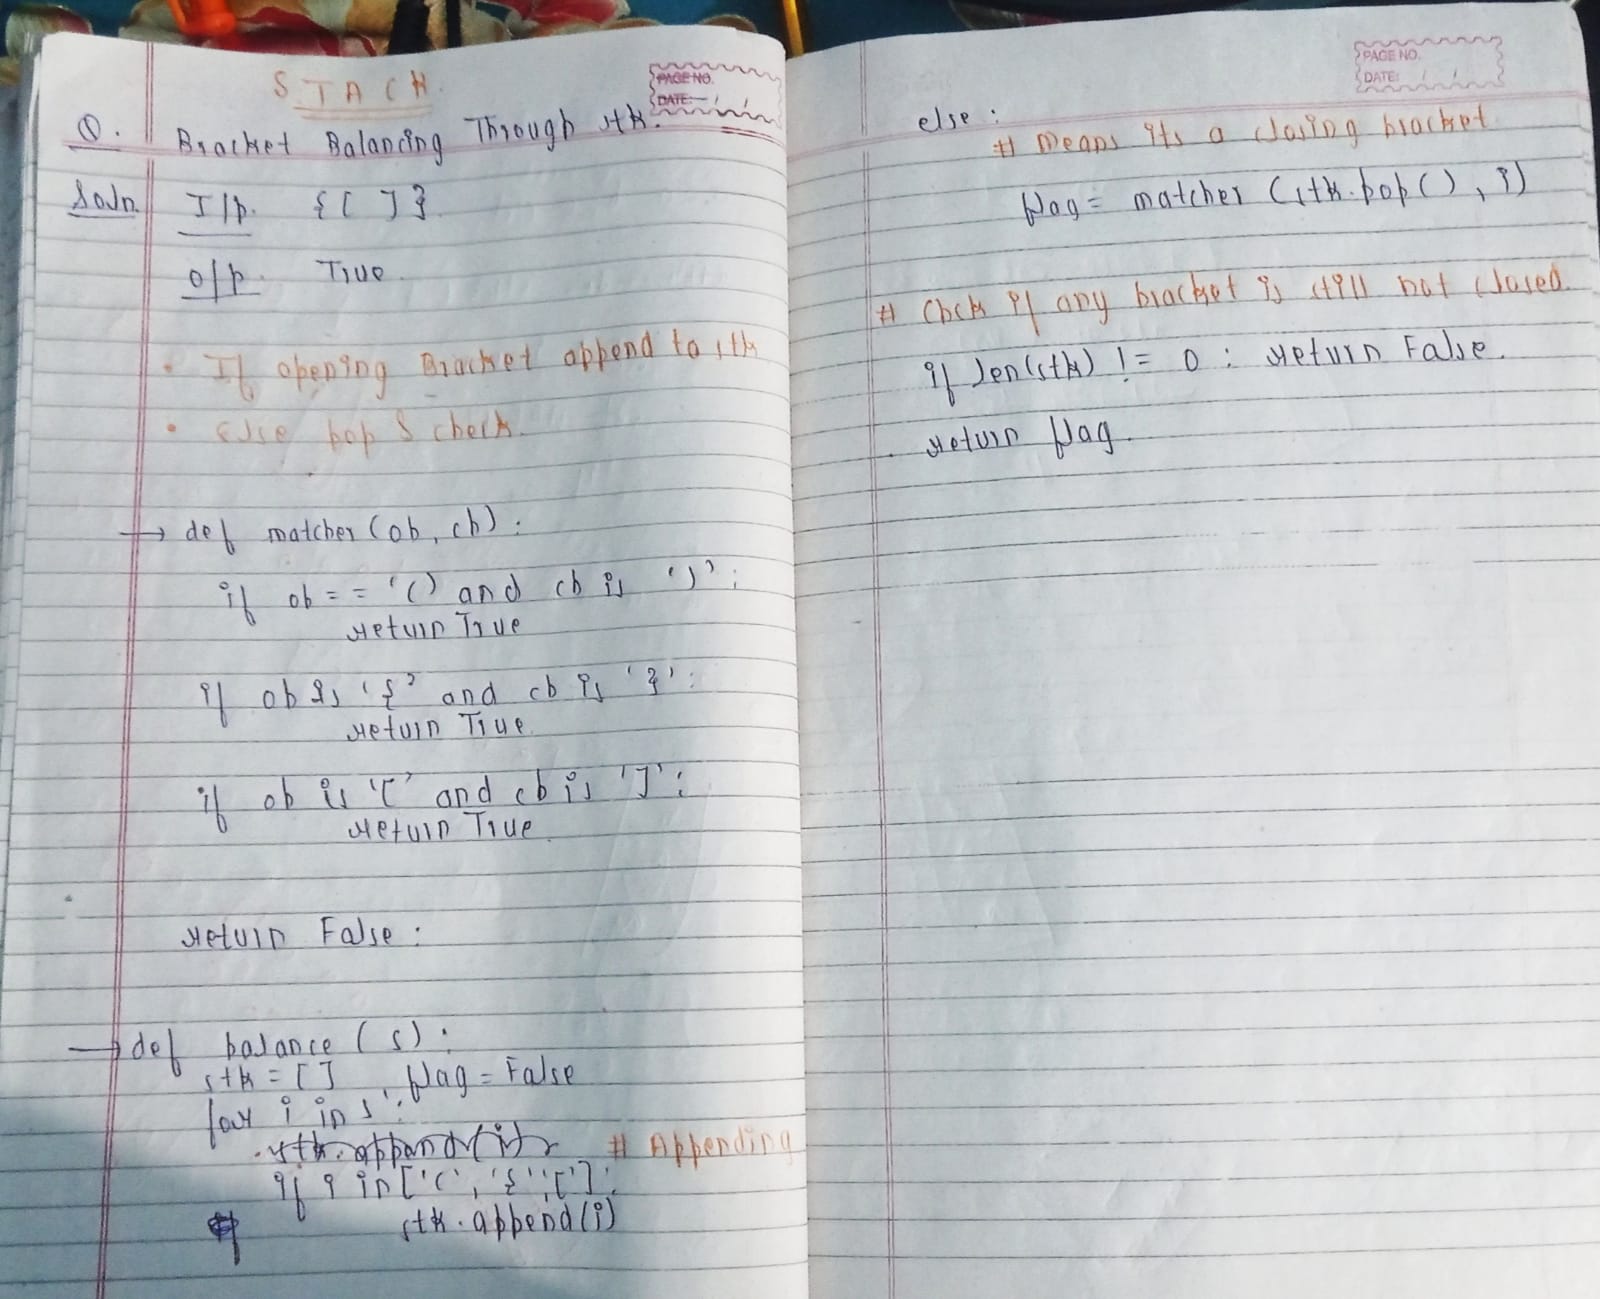 STACK
PAGE NO.
DATE: / /
Q. Bracket Balancing Through stk.
Soln I/p. {[ ]}
O/p. True.
• If opening Bracket append to stk
• Else pop & check.
→ def matcher (ob, cb):
if ob == '(' and cb is ')':
return True
if ob is '{' and cb is '}':
return True.
if ob is '[' and cb is ']':
return True.
return False:
→ def balance (s):
stk = [] , flag = False
for i in s:
stk.append(i) # Appending
if i in ['(', '{', '[']:
stk.append(i)
PAGE NO.
DATE: / /
else :
# Means its a closing bracket
flag = matcher (stk.pop(), i)
# Chck if any bracket is still not closed.
if len(stk) != 0 : return False.
return flag.